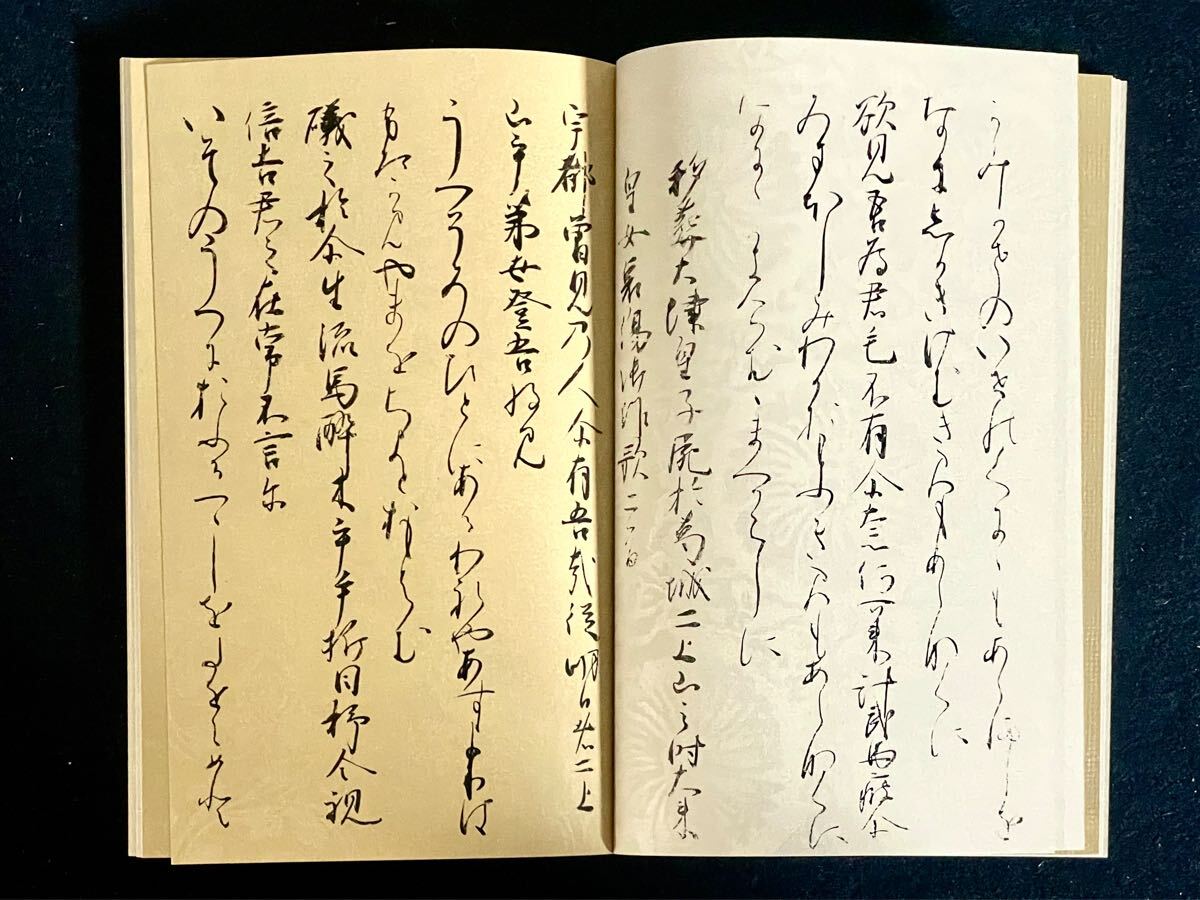 かみかせのいせのくにゝもあらましを
なにしかきけむきみもあらなくに
欲見吾為君毛不有尓奈何可来計武馬疲尓
みまほしみわかおもふきみもあらなくに
なにゝ
移葬大津皇子屍於葛城二上山之時大来
皇女哀傷御作歌二首
宇都曽見乃人尓有吾哉従明日者二上
山乎弟世登吾将見
うつそみのひとにあるわれやあすよりは
ふたかみやまを
礒之於尓生流馬酔木乎手折目杼令視
倍吉君之在常不言尓
いそのうへにおふるつゝしをたをらめと